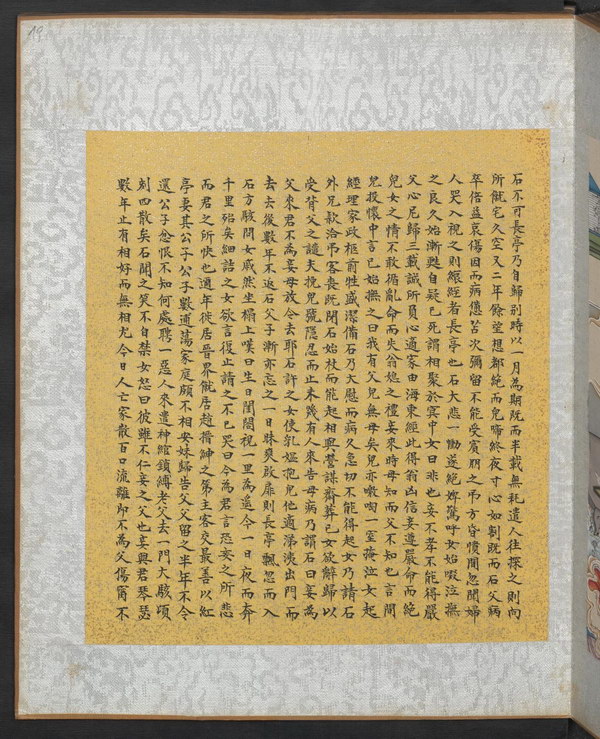 石不可長亭乃自歸別時以一月為期既而半載無耗遣人往探之則向
所僦宅久空又二年餘望想都絕而兒啼終夜寸心如割既而石父病
卒倍益哀傷因而病憊苫次彌留不能受賓朋之弔方昏憒間忽聞婦
人哭入視之則縗絰者長亭也石大悲一慟遂絕婢驚呼女始輟泣撫
之良久始漸甦自疑已死謂相聚於冥中女曰非也妾不孝不能得嚴
父心尼歸三載誠所負心適家由海東經此得翁凶信妾遵嚴命而絕
兒女之情不敢循亂命而失翁媳之禮妾來時母知而父不知也言間
兒投懷中言已始撫之曰我有父兒無母矣兒亦噭啕一室掩泣女起
經理家政柩前牲盛潔備石乃大慰而病久急切不能得起女乃請石
外兄款洽弔客喪既閉石始杖而能起相與營謀齋葬已女欲辭歸以
受背父之譴夫挽兒號隱忍而止未幾有人來告母病乃謂石曰妾為
父來君不為妾母放令去耶石許之女使乳媼抱兒他適涕洟出門而
去去後數年不返石父子漸亦忘之一日昧爽啟扉則長亭飄忽而入
石方駭問女戚然坐榻上嘆曰生日閨閣視一里為遙今一日夜而奔
千里殆矣細詰之女欲言復止請之不已哭曰今為君言恐妾之所悲
而君之所快也邇年徙居晉界僦居趙搢紳之第主客交最善以紅
亭妻其公子公子數逋蕩家庭頗不相安妹歸告父父留之半年不令
還公子忿恨不知何處聘一惡人來遣神綰鎖縛老父去一門大駭頃
刻四散矣石聞之笑不自禁女怒曰彼雖不仁妾之父也妾與君琴瑟
數年止有相好而無相尤今日人亡家散百口流離即不為父傷寧不
19